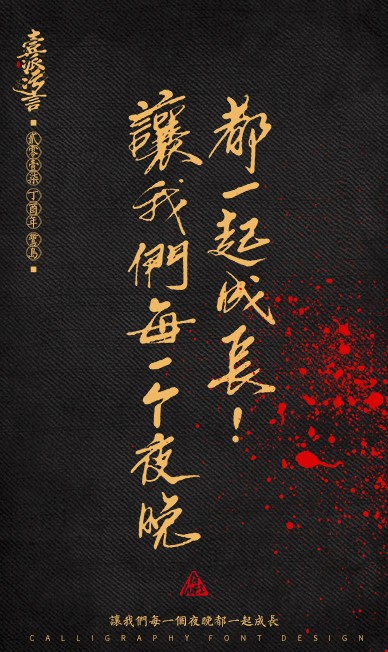 壹派污言
贰零壹柒
丁酉年
讓我們每一个夜晚
都一起成長！
讓我們每一個夜晚都一起成長
CALLIGRAPHY FONT DESIGN